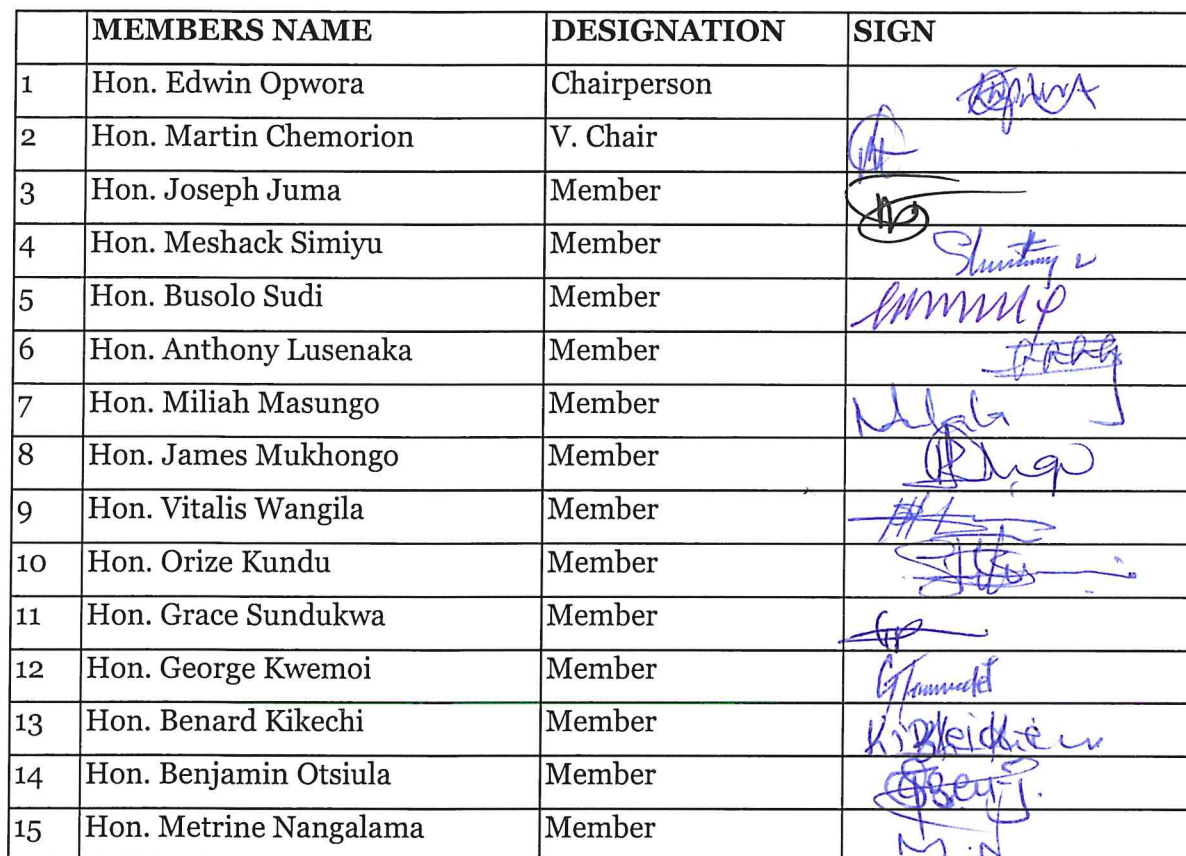 MEMBERS NAME DESIGNATION SIGN
1 Hon. Edwin Opwora Chairperson
2 Hon. Martin Chemorion V. Chair
3 Hon. Joseph Juma Member
4 Hon. Meshack Simiyu Member
5 Hon. Busolo Sudi Member
6 Hon. Anthony Lusenaka Member
7 Hon. Miliah Masungo Member
8 Hon. James Mukhongo Member
9 Hon. Vitalis Wangila Member
10 Hon. Orize Kundu Member
11 Hon. Grace Sundukwa Member
12 Hon. George Kwemoi Member
13 Hon. Benard Kikechi Member
14 Hon. Benjamin Otsiula Member
15 Hon. Metrine Nangalama Member M.N